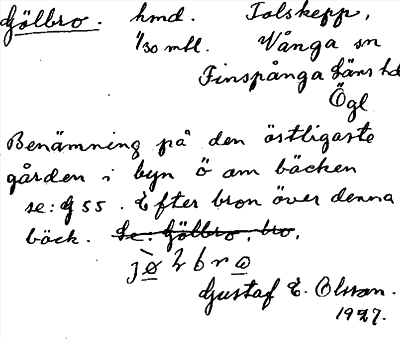 Gölbro. hmd. Tolskepp,
1/30 mtl. Vånga sn
Finspånga läns hd
Ögl
Benämning på den östligaste
gården i byn ö om bäcken
se: G 55. Efter bron över denna
bäck. Se: Gölbro, bro,
Gustaf E. Olsson.
1927.